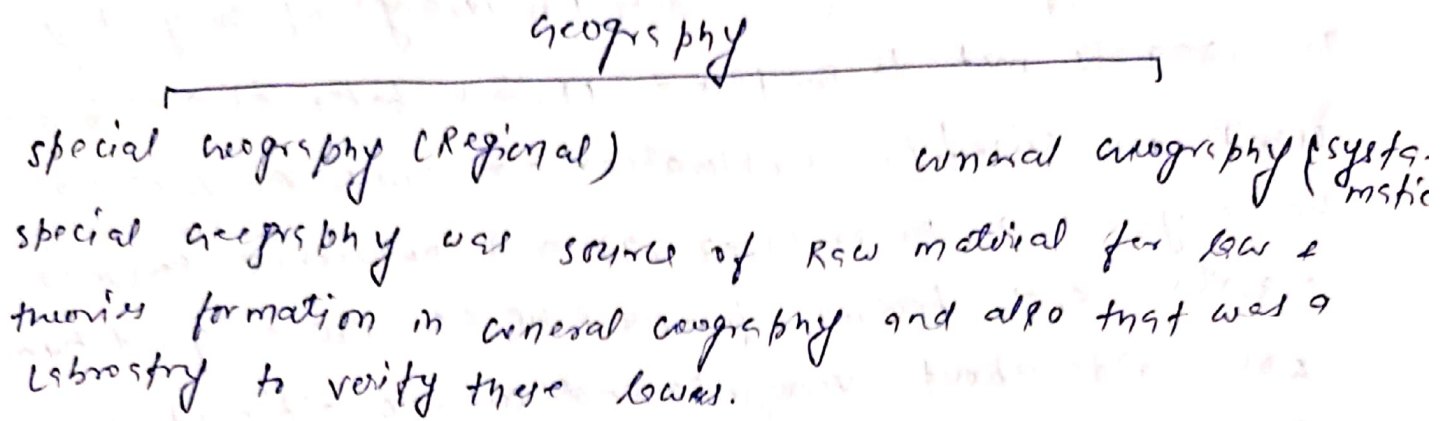 Geography
special Geography (Regional) General Geography (systa-
matic
special Geography was source of Raw material for law &
theories formation in General Geography and also that was a
Labrostry to verify these lowes.